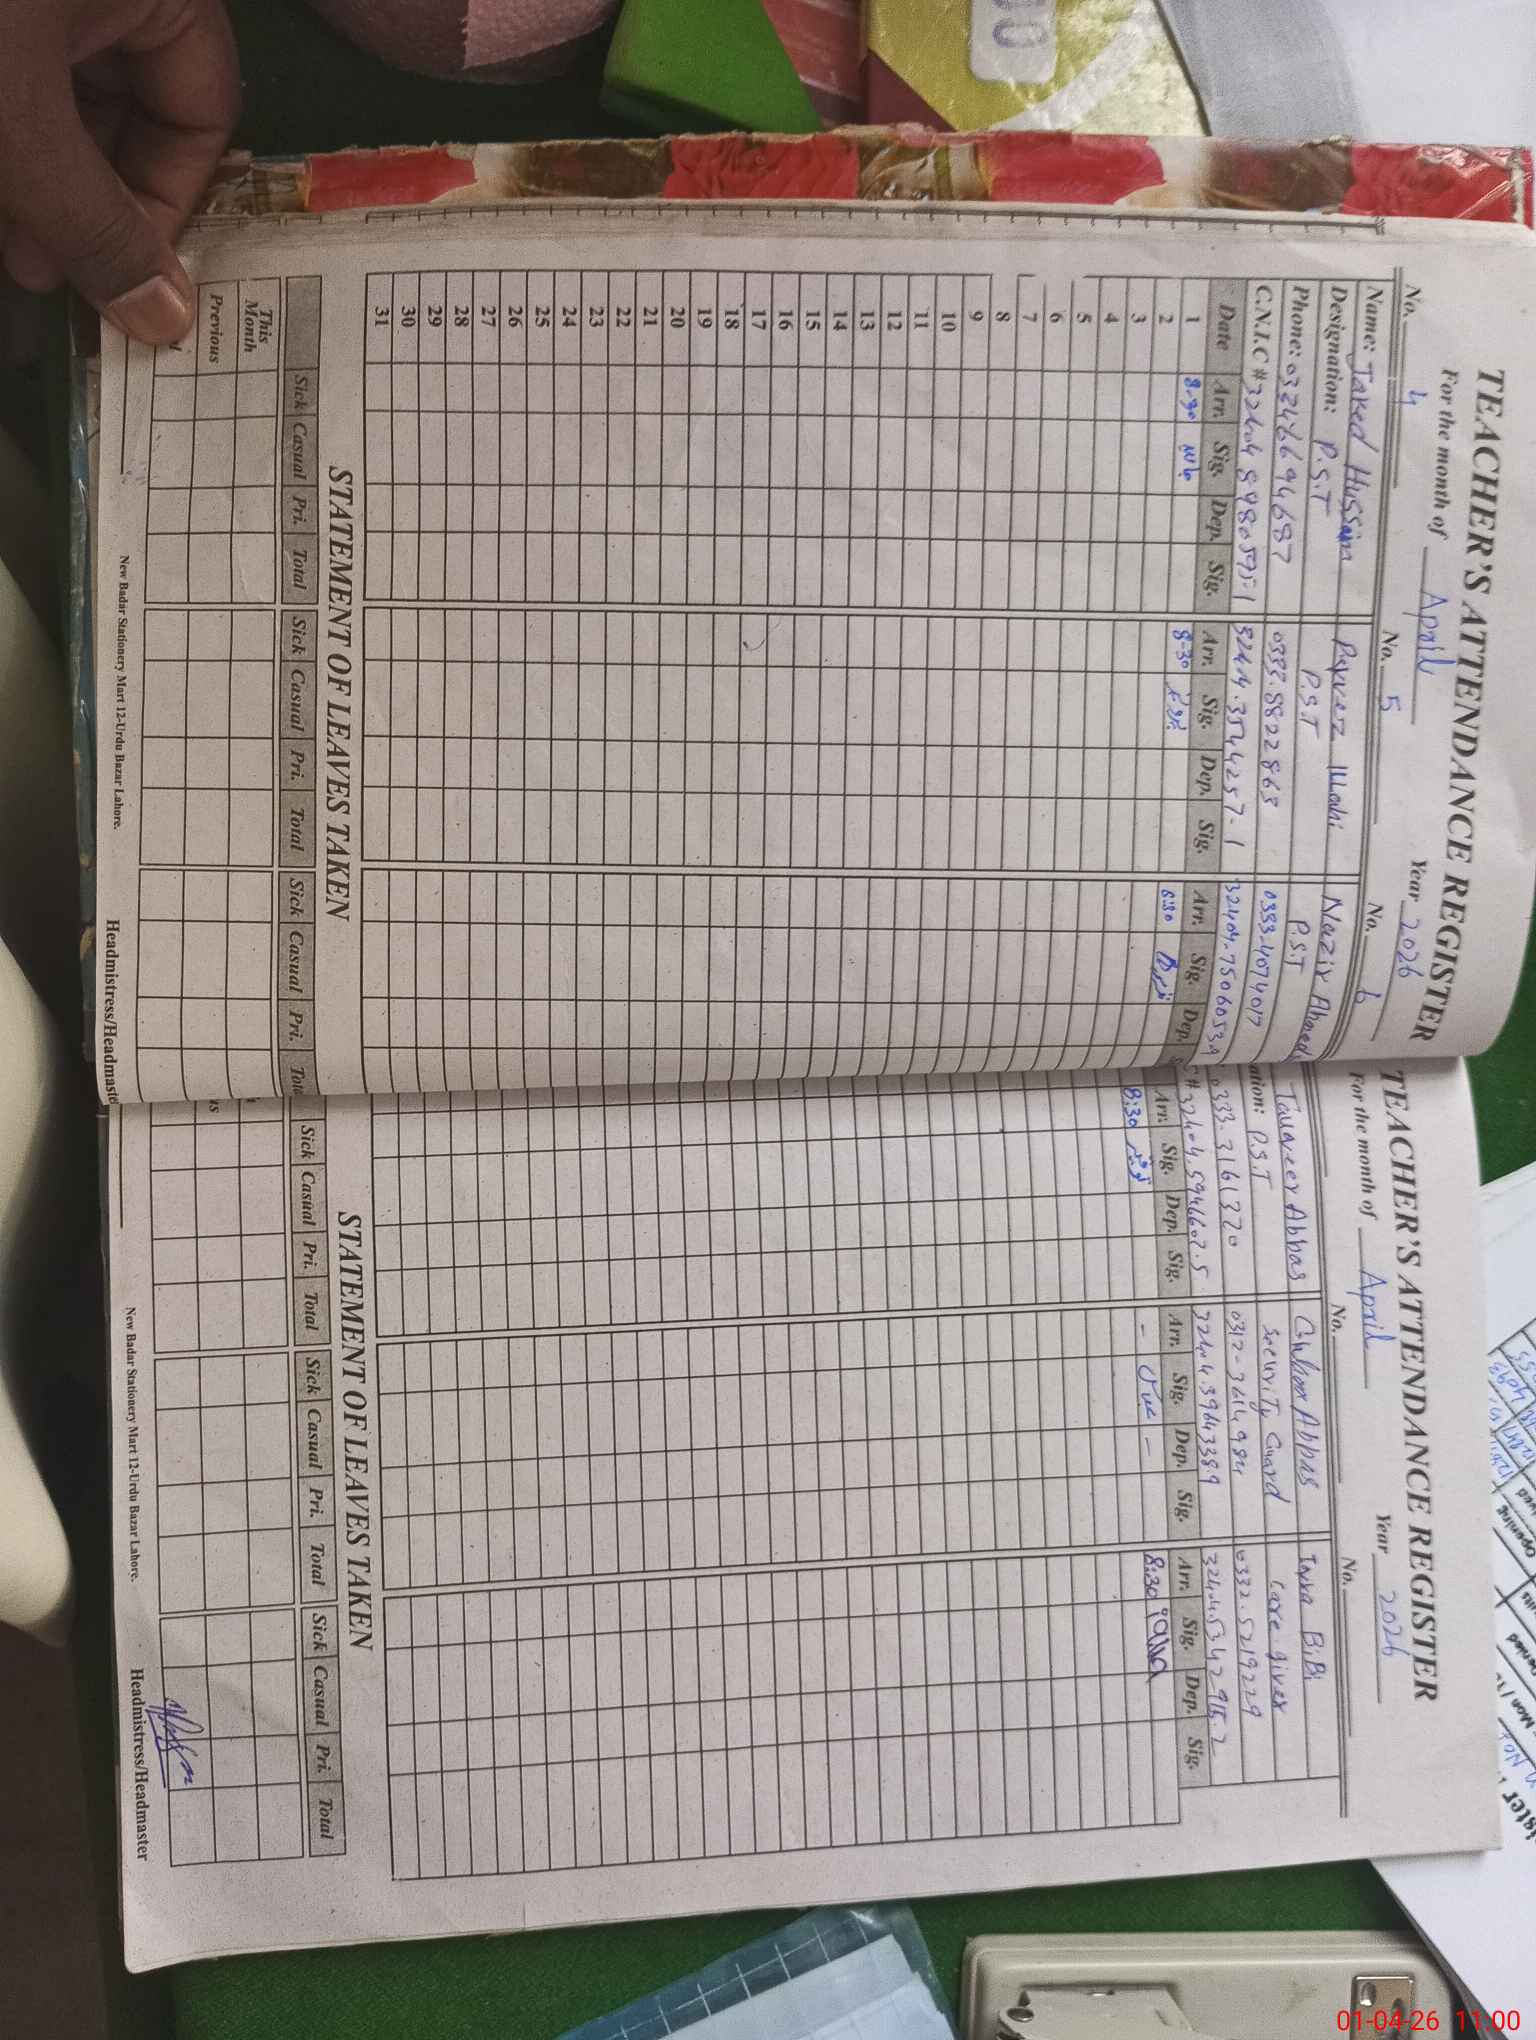 TEACHER'S ATTENDANCE REGISTER
For the month of April Year 2026
No. 4 No. 5 No. 6
Name: Javed Hussain Pervez Illahi Nazir Ahmed
Designation: P.S.T P.S.T P.S.T
Phone: 03346694687 0333.8822863 0333-4074017
C.N.I.C #
Date Arr. Sig. Dep. Sig. Arr. Sig. Dep. Sig. Arr. Sig. Dep.
1 8-30 8-30 8:30
2
3
4
5
6
7
8
9
10
11
12
13
14
15
16
17
18
19
20
21
22
23
24
25
26
27
28
29
30
31
STATEMENT OF LEAVES TAKEN
Sick Casual Pri. Total Sick Casual Pri. Total Sick Casual Pri.
This Month
Previous
New Badar Stationery Mart 12-Urdu Bazar Lahore.
Headmistress/Headmaste
TEACHER'S ATTENDANCE REGISTER
For the month of April Year 2026
No. No.
Abbas Abbas BiBi
P.S.T Security Guard Care giver
0333.3161320 0312-3614984 0332.5219229
Arr. Sig. Dep. Sig. Arr. Sig. Dep. Sig. Arr. Sig. Dep. Sig.
8:30 تنویر - - 8:30
STATEMENT OF LEAVES TAKEN
Sick Casual Pri. Total Sick Casual Pri. Total Sick Casual Pri. Total
New Badar Stationery Mart 12-Urdu Bazar Lahore.
Headmistress/Headmaster
01-04-26 11:00